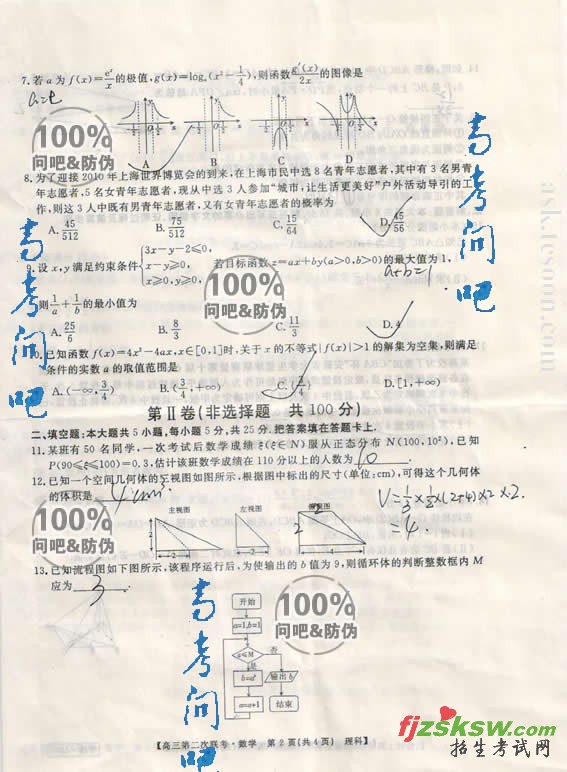 7.若a为f(x)=e^x/x的极值,g(x)=log_a(x²-1/4),则函数g′(x)/2x的图像是
a=e
A B C D
8.为了迎接2010年上海世界博览会的到来,在上海市民中选8名青年志愿者,其中有3名男青
年志愿者,5名女青年志愿者,现从中选3人参加“城市,让生活更美好”户外活动导引的工
作,则这3人中既有男青年志愿者,又有女青年志愿者的概率为
A.45/512 B.75/512 C.15/64 D.45/56
9.设x,y满足约束条件{3x-y-2≤0, x-y≥0, x≥0,y≥0, 若目标函数z=ax+by(a>0,b>0)的最大值为1,
a+b=1
则1/a+1/b的最小值为
A.25/6 B.8/3 C.11/3 D.4
10.已知函数f(x)=4x²-4ax,x∈[0,1]时,关于x的不等式|f(x)|>1的解集为空集,则满足
条件的实数a的取值范围是
A.(-∞,3/4) B.(3/4,+∞) C.{3/4} D.[1,+∞)
第Ⅱ卷(非选择题 共100分)
二、填空题:本大题共5小题,每小题5分,共25分.把答案填在答题卡上.
11.某班有50名同学,一次考试后数学成绩ξ(ξ∈N)服从正态分布N(100,10²),已知
P(90≤ξ≤100)=0.3,估计该班数学成绩在110分以上的人数为 10 .
12.已知一个空间几何体的三视图如图所示,根据图中标出的尺寸(单位:cm),可得这个几何体
的体积是 4cm³
V=1/3×1/2×(2+4)×2×2.
=4.
主视图 左视图 俯视图
2 2 4 2 4
13.已知流程图如下图所示,该程序运行后,为使输出的b值为9,则循环体的判断整数框内M
应为 3 .
开始
a=1,b=1
a≤M 否
是
b=a² 输出b
a=a+1 结束
【高三第二次联考·数学 第2页(共4页) 理科】
100%
问吧&防伪
100%
问吧&防伪
100%
问吧&防伪
100%
问吧&防伪
100%
问吧&防伪
高考问吧
高考问吧
高考问吧
ask.tesoon.com
fjzsksw.com
招生考试网